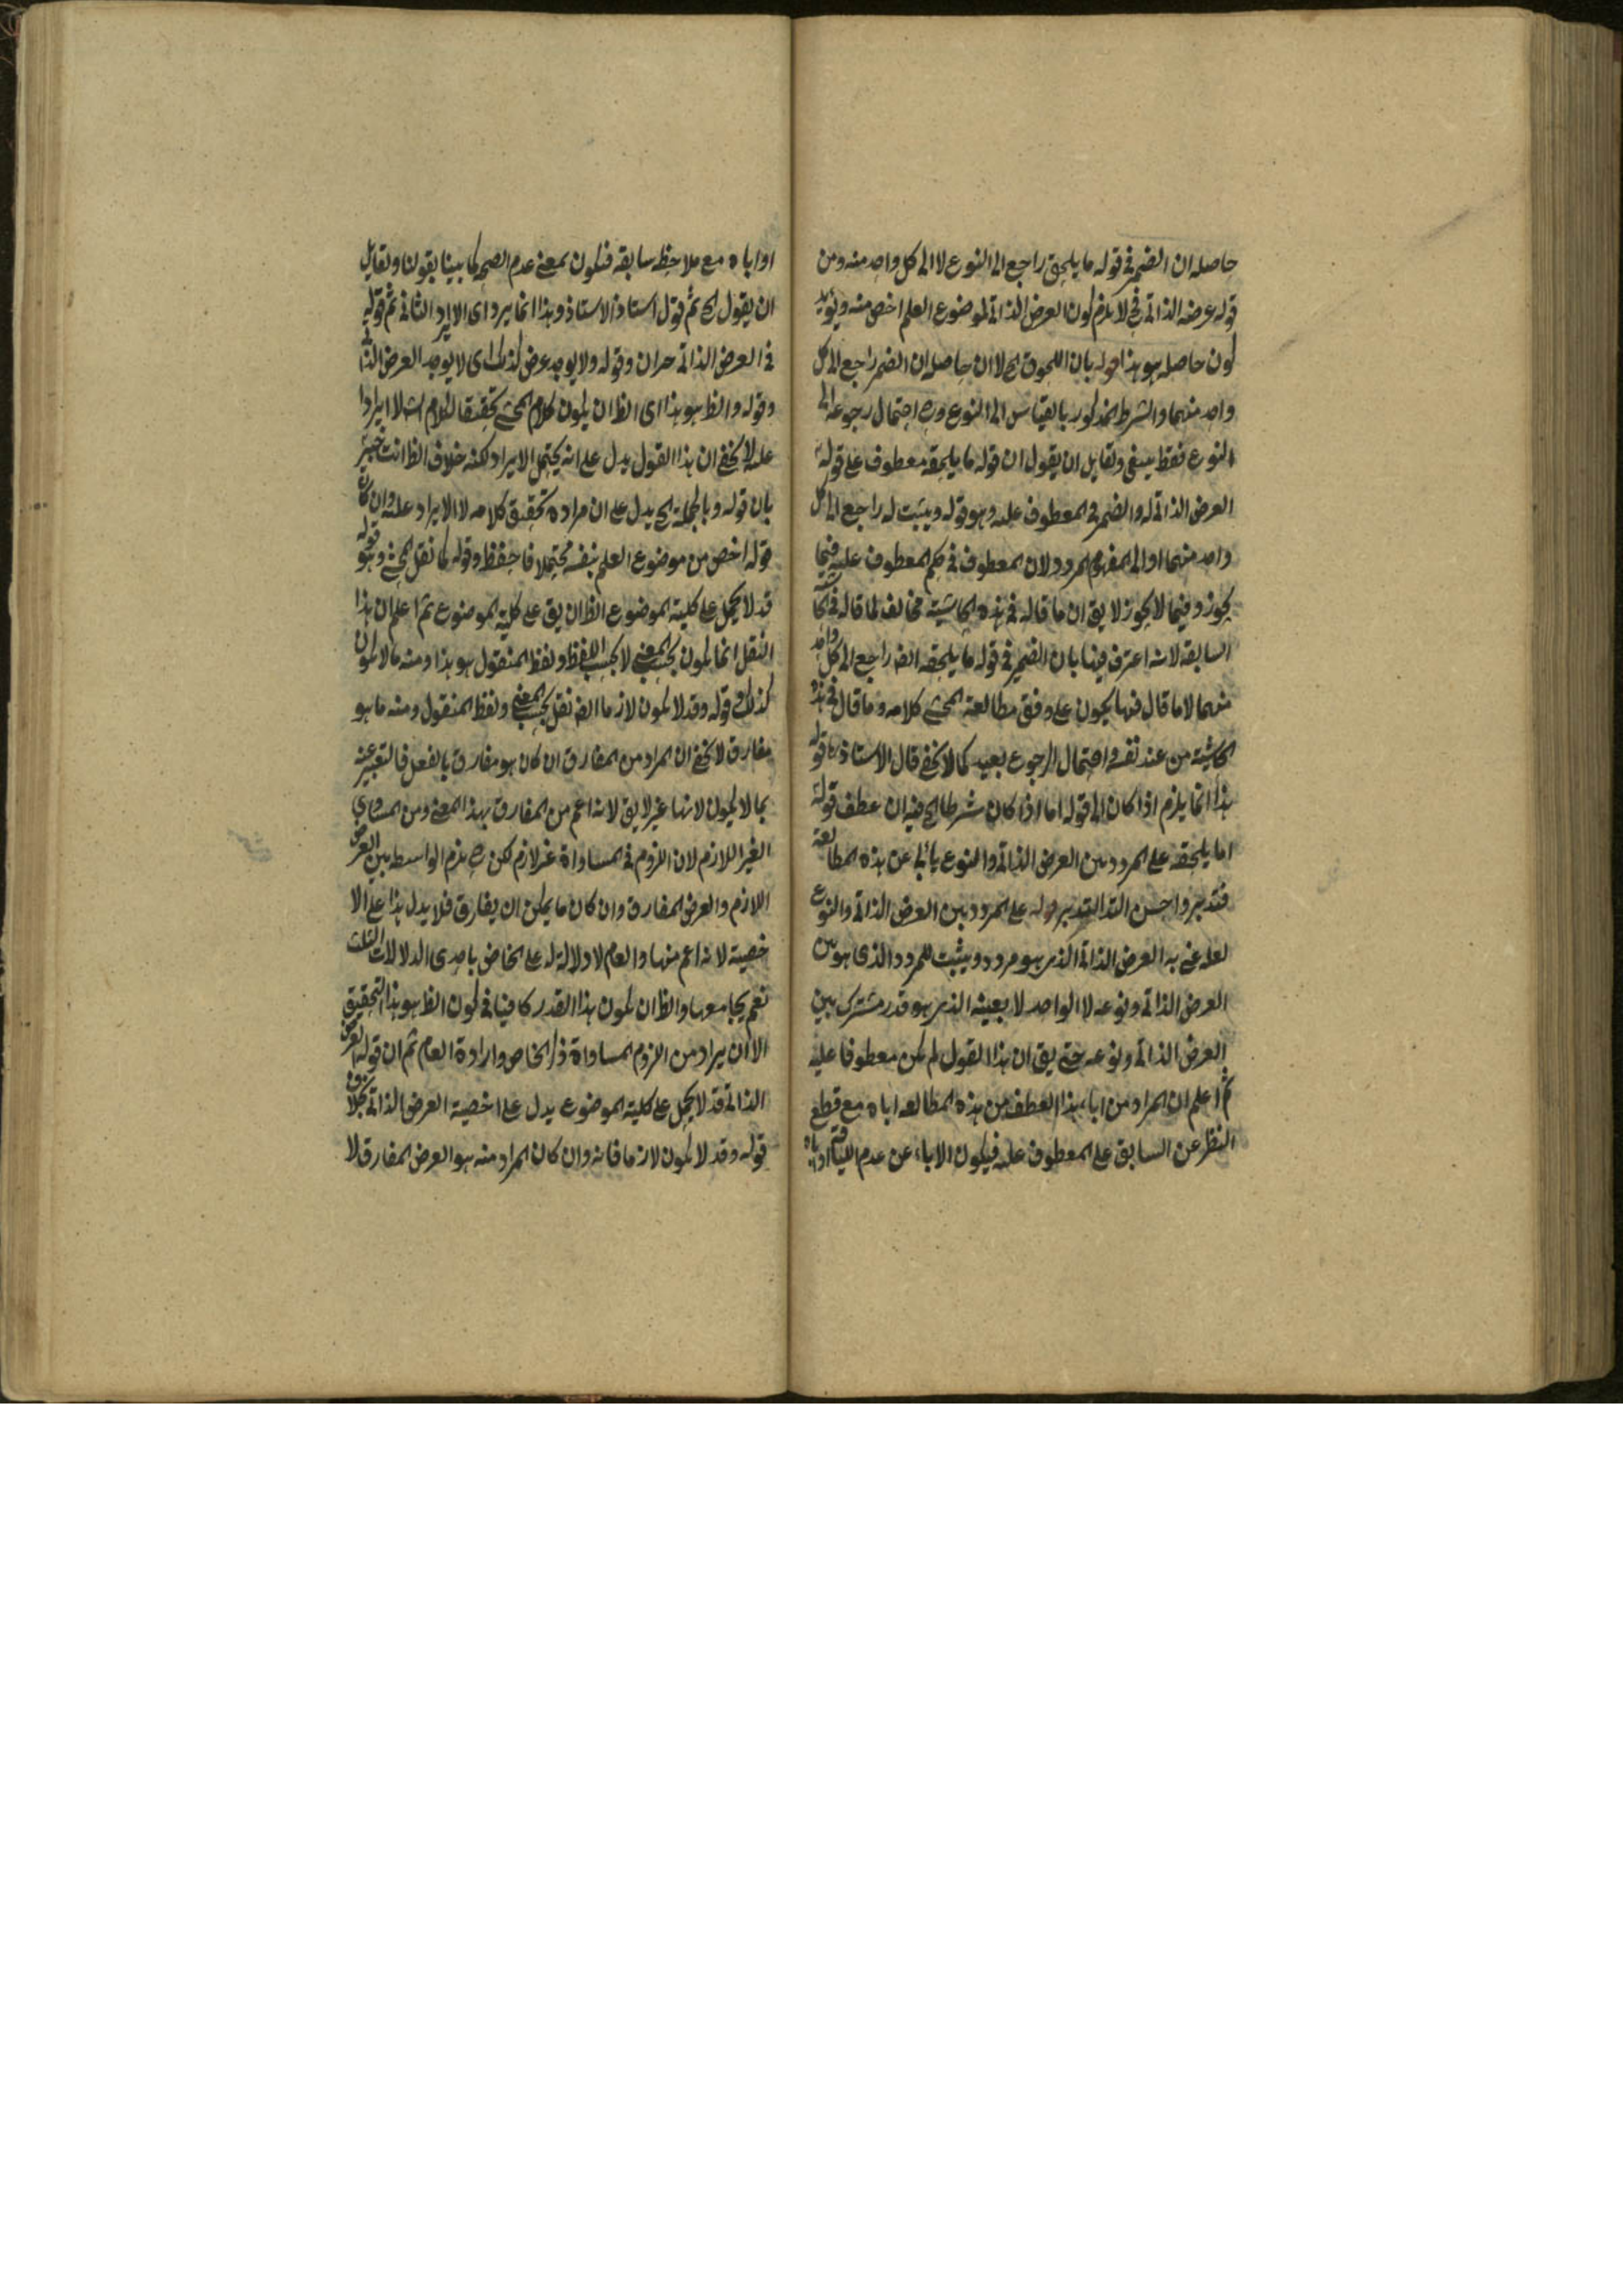 حاصله ان الضمير في قوله ما يلحق راجع الى النوع لا الى كل واحد منه ومن
قوله عرضه الذاتي فح لا يلزم كون العرض الذاتي لموضوع العلم اخص منه ويؤيد
كون حاصله هو هذا قوله بان اللحوق الخ لا ان حاصله ان الضمير راجع الى كل
واحد منهما والشرط المذكور بالقياس الى النوع وح احتمال رجوعه الى
النوع فقط يبقى ولقايل ان يقول ان قوله ما يلحقه معطوف على قوله
العرض الذاتي له والضمير في المعطوف عليه وهو قوله ويثبت له راجع الى كل
واحد منهما او الى المفهوم المردد لان المعطوف في حكم المعطوف عليه فيما
يجوز وفيما لا يجوز لا يق ان ما قاله في هذه الحاشية مخالف لما قاله في الحاشية
السابقة لانه اعترف هنا بان الضمير في قوله ما يلحقه الخ راجع الى كل واحد
منهما لا ما قال فيها يكون على وفق مطالعة المحشي كلامه وما قال في هذه
الحاشية من عند نفسه واحتمال الرجوع بعيد كما لا يخفى قال الاستاذ ره قوله
هذا انما يلزم اذا كان الى قوله اما اذا كان شرطا الخ فيه ان عطف قوله
اما يلحقه على المردد بين العرض الذاتي والنوع يابى عن هذه المطالعة
فتدبر واحسن التدبر قوله على المردد بين العرض الذاتي والنوع
لعله عنى به العرض الذاتي الذي هو مردد ويثبت للمردد الذي هو بين
العرض الذاتي ونوعه لا الواحد لا بعينه الذي هو قدر مشترك بين
العرض الذاتي ونوعه حتى يق ان هذا القول لم يكن معطوفا عليه
ثم اعلم ان المراد من اباء هذا العطف من هذه المطالعة اباه مع قطع
النظر عن السابق على المعطوف عليه فيكون الاباء عن عدم اللياقة او اباه
او اباه مع ملاحظه سابقه فيكون بمعنى عدم الصحه كما بينا بقولنا ولقايل
ان يقول الخ ثم قول استاذ الاستاذ وهذا انما يرد اى الايراد الثاني ثم قوله
في العرض الذاتي وقوله ولا يوجد عرض كذلك اى لا يوجد العرض الذاتي
وقوله والظ هو هذا اى الظ ان يكون كلام المحشي تحقيقا لكلام الش لا ايرادا
عليه لا يخفى ان هذا القول يدل على انه يحتمل الايراد لكنه خلاف الظ انت خبير
بان قوله وبالجملة الخ يدل على ان مراده تحقيق كلامه لا الايراد عليه وان كان
قوله اخص من موضوع العلم بنفسه محتملا فاحفظ وقوله كما نقل المحشي وهو قوله
قد لا يحمل على كلية الموضوع الظ ان يق على كلية الموضوع ثم اعلم ان هذا
النقل انما يكون بحسب المعنى لا بحسب اللفظ ولفظ المنقول هو هذا ومنه ما لا يكون
كذلك وقوله وقد لا يكون لازما الخ نقل بحسب المعنى ولفظ المنقول ومنه ما هو
مفارق لا يخفى ان المراد من المفارق ان كان هو مفارق بالفعل فالتعبير عنه
بما لا يكون لازما غير لايق لانه اعم من المفارق بهذا المعنى ومن المساوي
الغير اللازم لان اللزوم في المساواة غير لازم لكن ح يلزم الواسطه بين العرض
اللازم والعرض المفارق وان كان ما يمكن ان يفارق فلا يدل هذا على الا
خصية لانه اعم منها والعام لا دلالة له على الخاص باحدى الدلالات الثلث
نعم يجامعها والظ ان يكون هذا القدر كافيا في كون الظ هو هذا التحقيق
الا ان يراد من اللزوم المساواة ذكر الخاص وارادة العام ثم ان قوله العرض
الذاتي قد لا يحمل على كلية الموضوع يدل على اخصية العرض الذاتي بخلاف
قوله وقد لا يكون لازما فانه وان كان المراد منه هو العرض المفارق لا